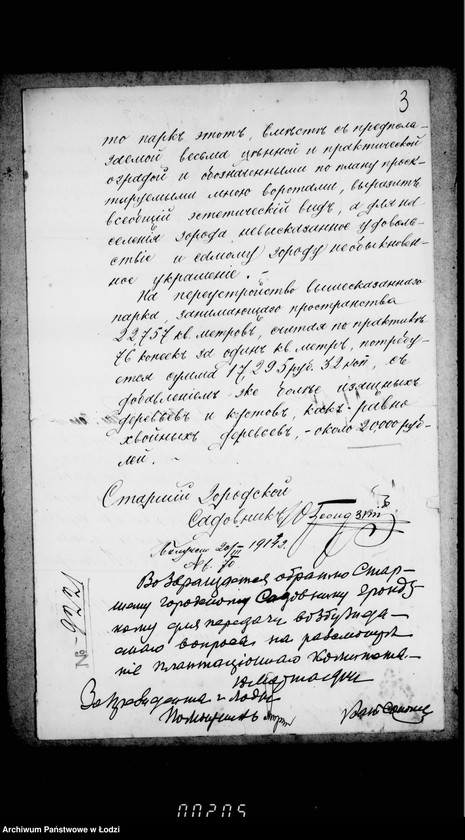 3
то паркъ этотъ, вмѣстѣ съ предпола-
гаемой весьма цѣнной и практической
оградой и обозначенными по плану проек-
тируемыми мною воротами, выразитъ
всеобщій эстетическій видъ, а для на
селенія города, невысказанное удоволь-
ствіе и самому городу необыкновен-
ное украшеніе. –
На переустройство вышесказаннаго
парка, занимающаго пространства
22,757 кв. метровъ, считая по практикѣ
76 копеекъ за одинъ кв. метръ, потребу-
ется сумма 17,295 руб. 32 коп., съ
добавленіемъ же болѣе изящныхъ
деревьевъ и кустовъ, какъ-равно
хвойныхъ деревьевъ, – около 20,000 руб-
лей. –
Старшій Городской
Садовникъ
20/III 1912 г.
№ 70
№ 9221
Возвращается обратно Стар-
шему городскому Садовнику
для передачи возбужда-
емаго вопроса на
Плантаціоннаго Комитета
За Президента г. Лодзи
00205
Archiwum Państwowe w Łodzi